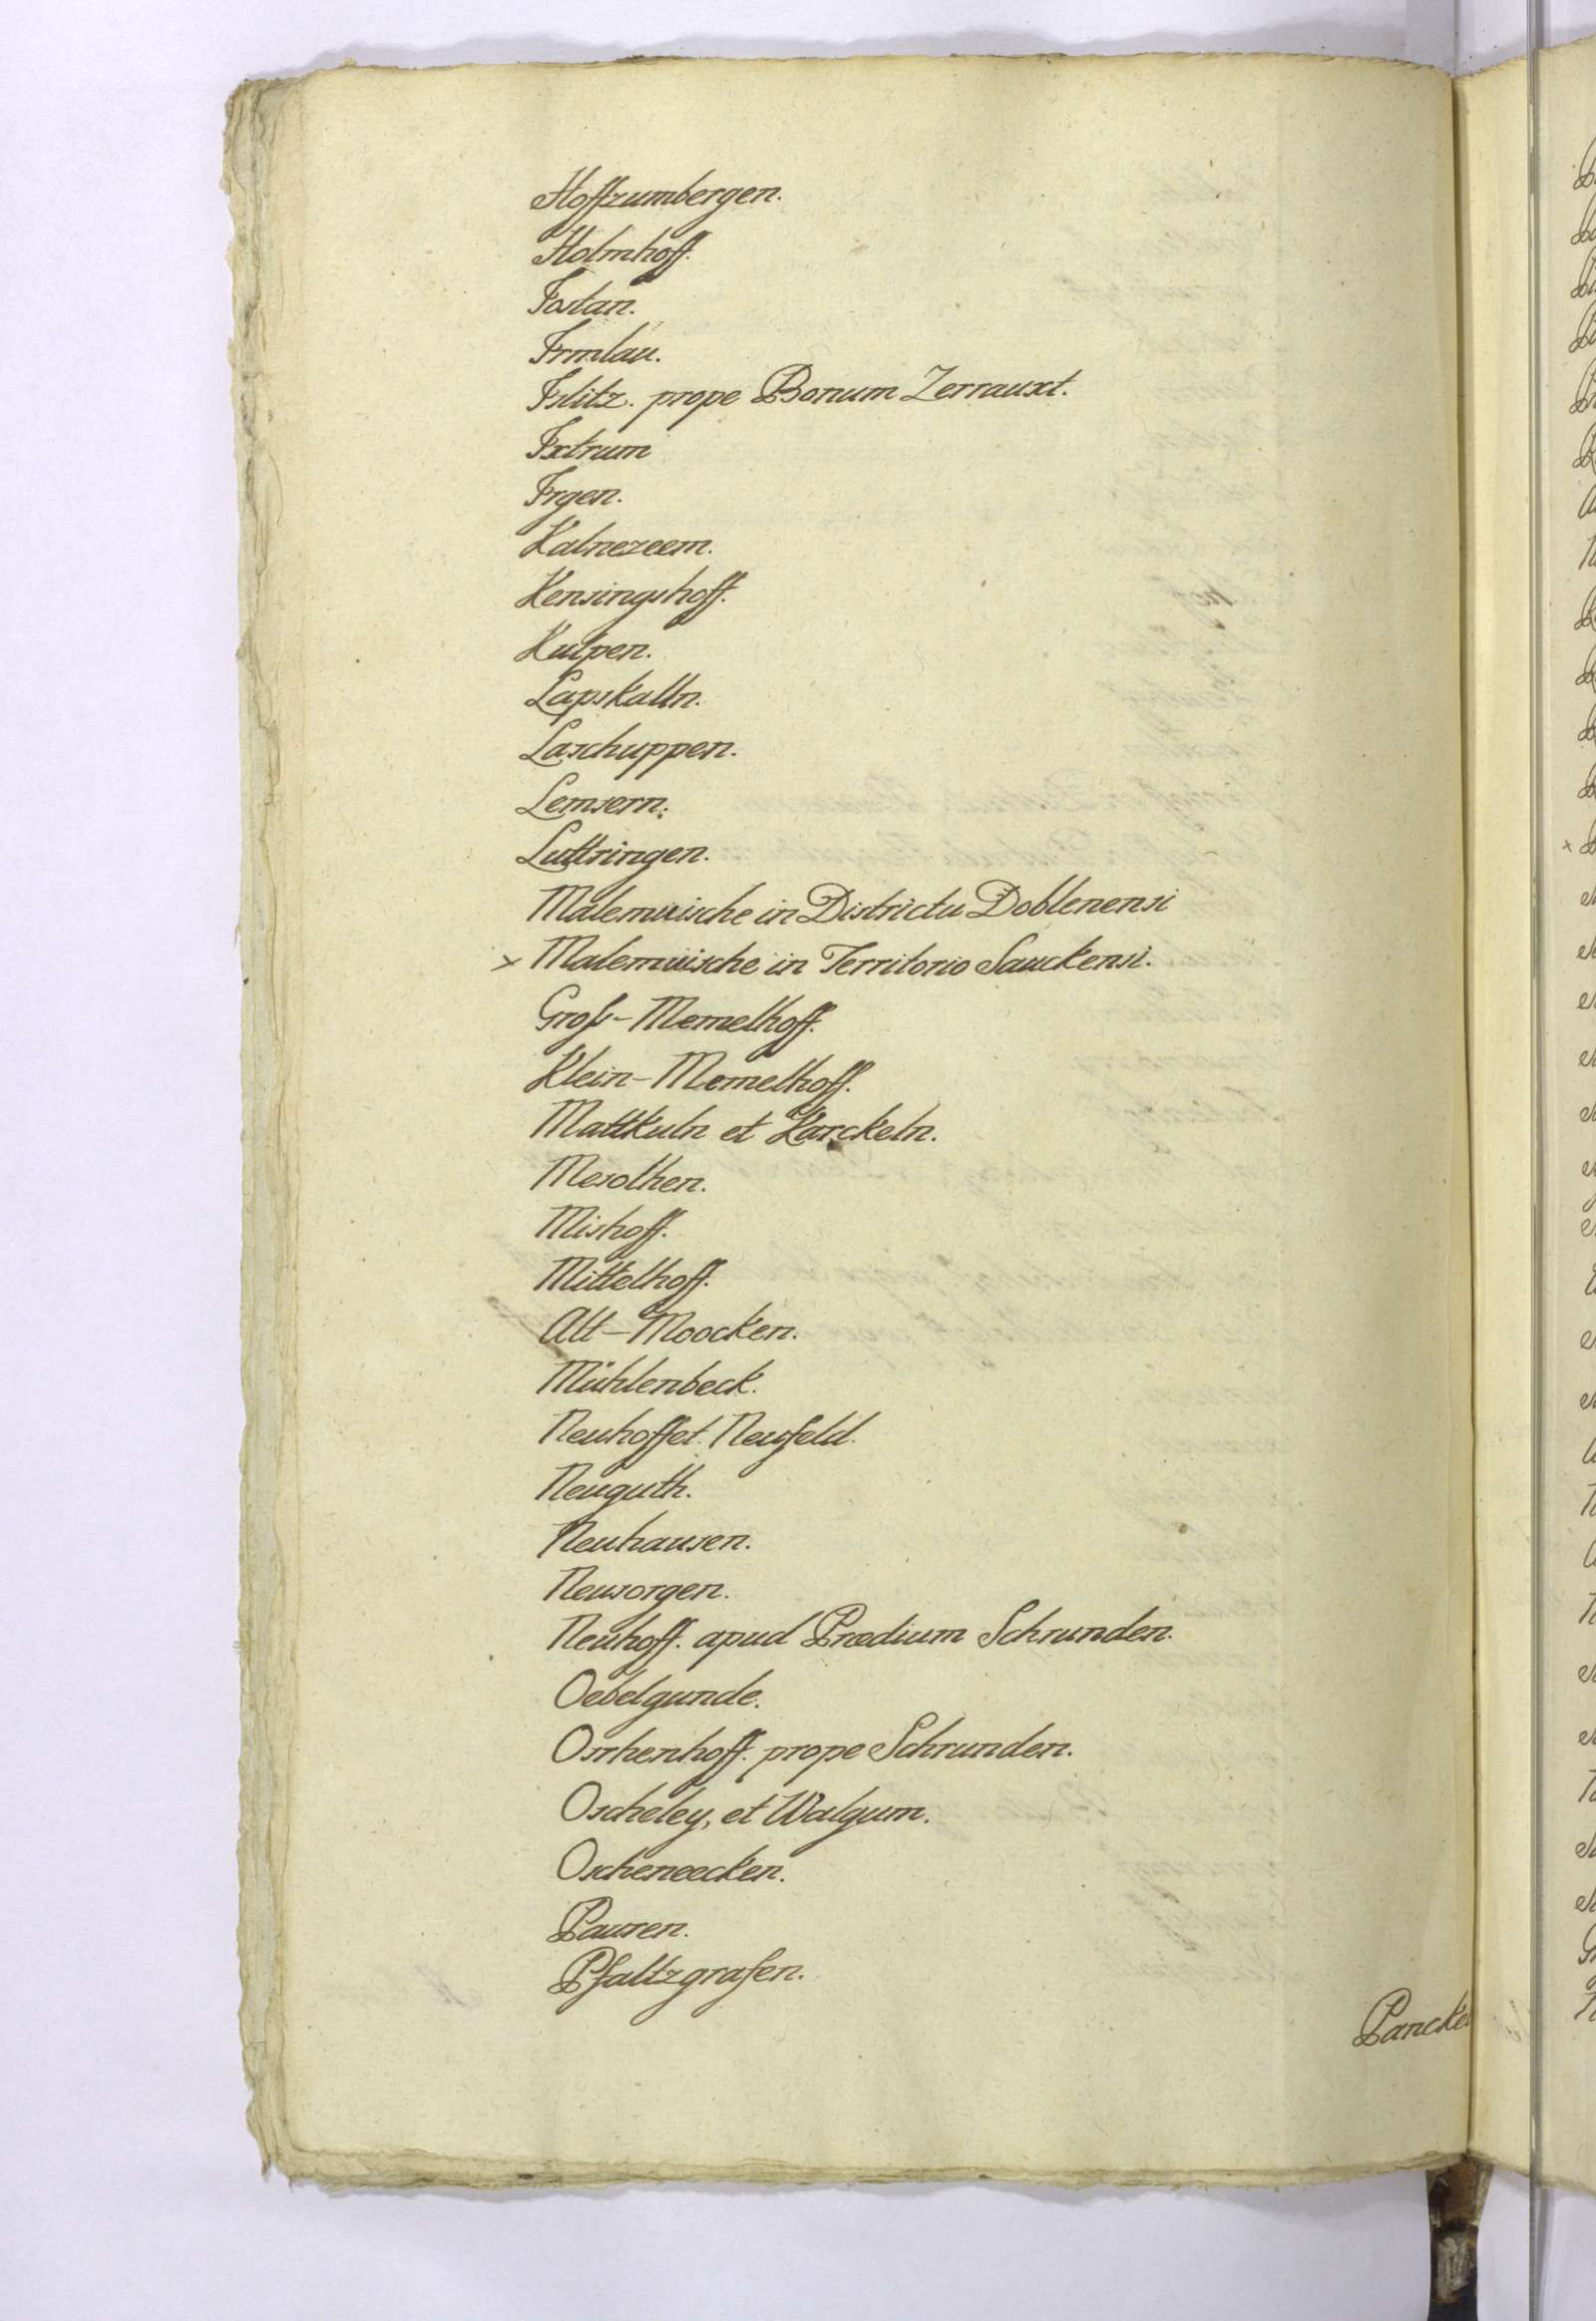 Hoffzumbergen.
Holmhoff.
Jostan.
Irmlau.
Islitz. prope Bonum Zerrauxt.
Ixtrum
Irgen.
Kalnezeem.
Kensingshoff.
Kulpen.
Lapskalln.
Laschuppen.
Lemsern.
Luttringen.
Malemuische in Districtu Doblenensi
x Malemuische in Territorio Sauckensi.
Groß-Memelhoff.
Klein-Memelhoff.
Mattkuln et Karckeln.
Mesothen.
Mishoff.
Mittelhoff.
Alt-Moocken.
Mühlenbeck.
Neuhoff et. Neufeld.
Neuguth.
Neuhausen.
Neusorgen.
Neuhoff. apud Prædium Schrunden.
Oebelgunde.
Osrhenhoff. prope Schrunden.
Oscheley, et Walgum.
Oscheneecken.
Pausen.
Pfaltzgrafen.
Pancke